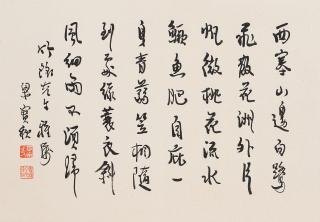 西塞山邊白鷺
飛散花洲外片
帆微桃花流水
鱖魚肥自庇一
身青蒻笠相隨
到處綠蓑衣斜
風細雨不須歸
先生
梁實秋